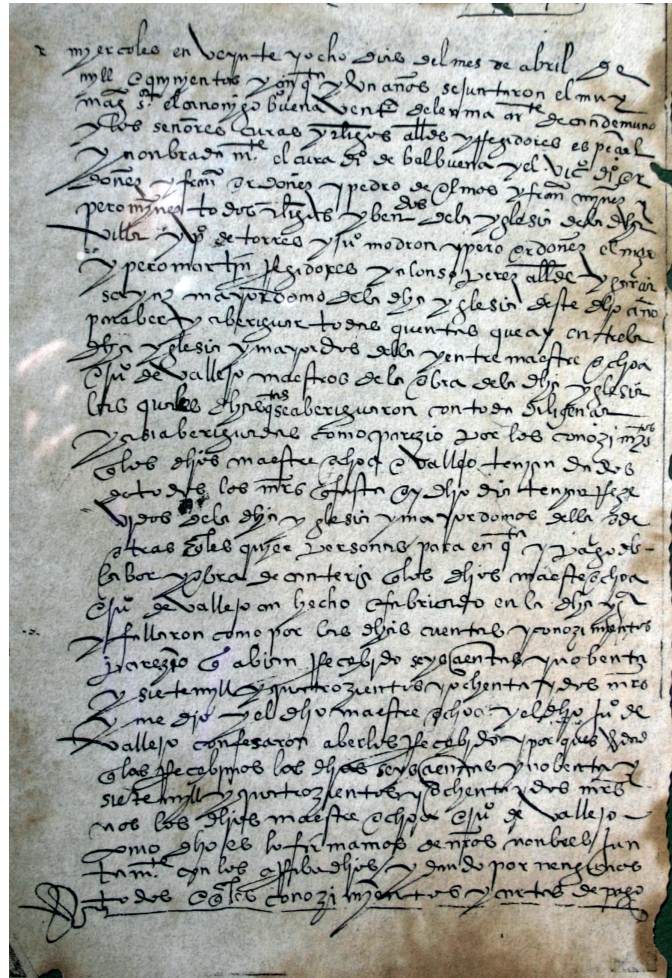 myercoles en veynte y ocho dias del mes de abril de
myll e quinientos y çinqta y un años se juntaron el muy
magco sr el canonigo buena ventra de lerma arte de candemuno
y los señores curas y clerigos alldes y rregidores espeçial
y nonbradamte el cura do de balbuena y el vico do or
doñez y franco ordoñez y pedro de olmos y franco minez y
pero minez todos clerigos y bendos de la yglesia de la dha
villa y po de torres y juo modron y pero ordoñez el
y pero martin rregidores y alonso perez allde y garcia
mayordomo de la dha yglesia deste dho año
para ber y aberiguar todas quentas que ay entre la
dha yglesia y mayordos della y entre maestre ochoa
e juo de vallejo maestros de la obra de la dha yglesia
las quales dhas qtas se aberiguaron con toda diligençia
y asi aberiguadas como parezio por los conozimytos
q los dhos maestre ochoa e vallejo tenian dados
de todos los mrs q fasta oy dho dia tenian rreze
vidos de la dha yglesia y mayordomos della o de
otras qles quier personas para en qta y pago del
labor y obra de canteria q los dhos maestre ochoa
e juo de vallejo an hecho e fabricado en la dha yga
y fallaron como por las dhas cuentas y conozimientos
parezio q abian rrecebido seys çientas y nobenta
y siete myll y quatrozientos y ochenta y dos mrs
y medio y el dho maestre ochoa y el dho juo de
vallejo confesaron aberlos rrecebido y por ques verdad
q los rrecebimos los dhos seys çientas y nobenta y
siete myll y quatrozientos y ochenta y dos mrs
nos los dhos maestre ochoa e juo de vallejo
como dho es lo firmamos de nros nonbres jun
tamte con los arribadhos y dando por nengunos
todos e qles conozimyentos y cartas de pago